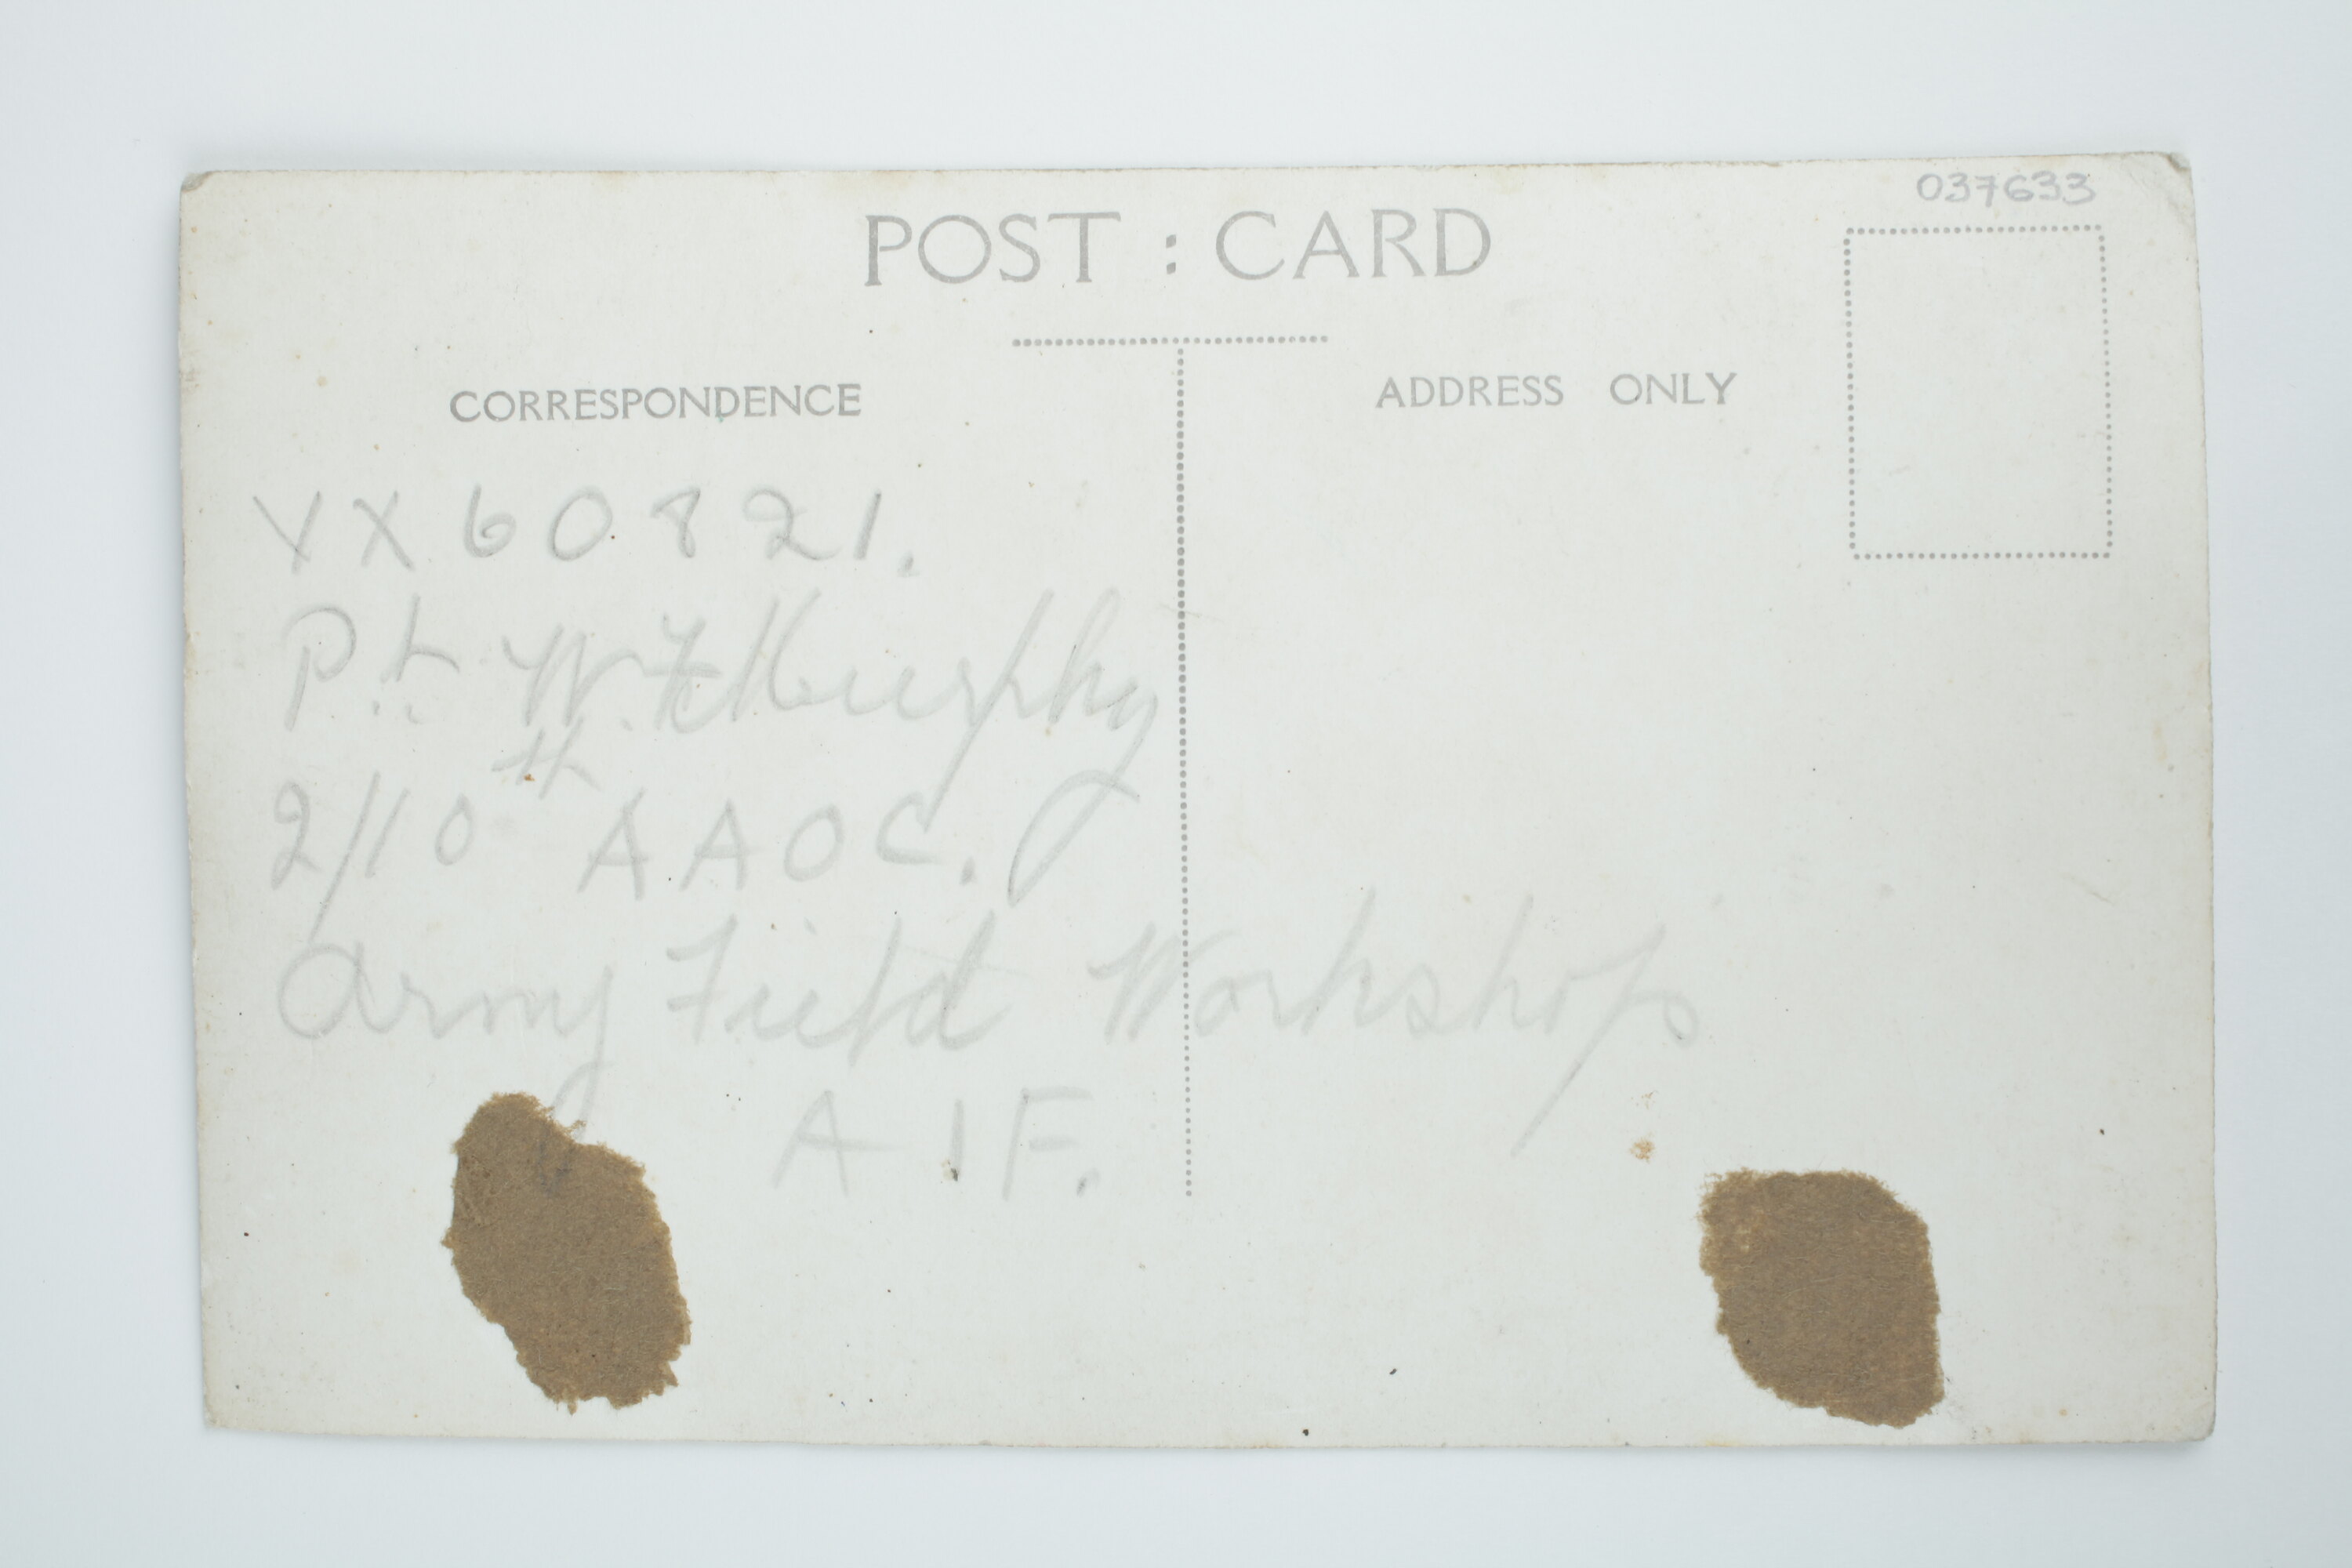 037633
POST : CARD
CORRESPONDENCE
ADDRESS ONLY
VX60821.
Pt. W. F Murphy
2/10th A A O C.
Army Field Workshops
A I F.